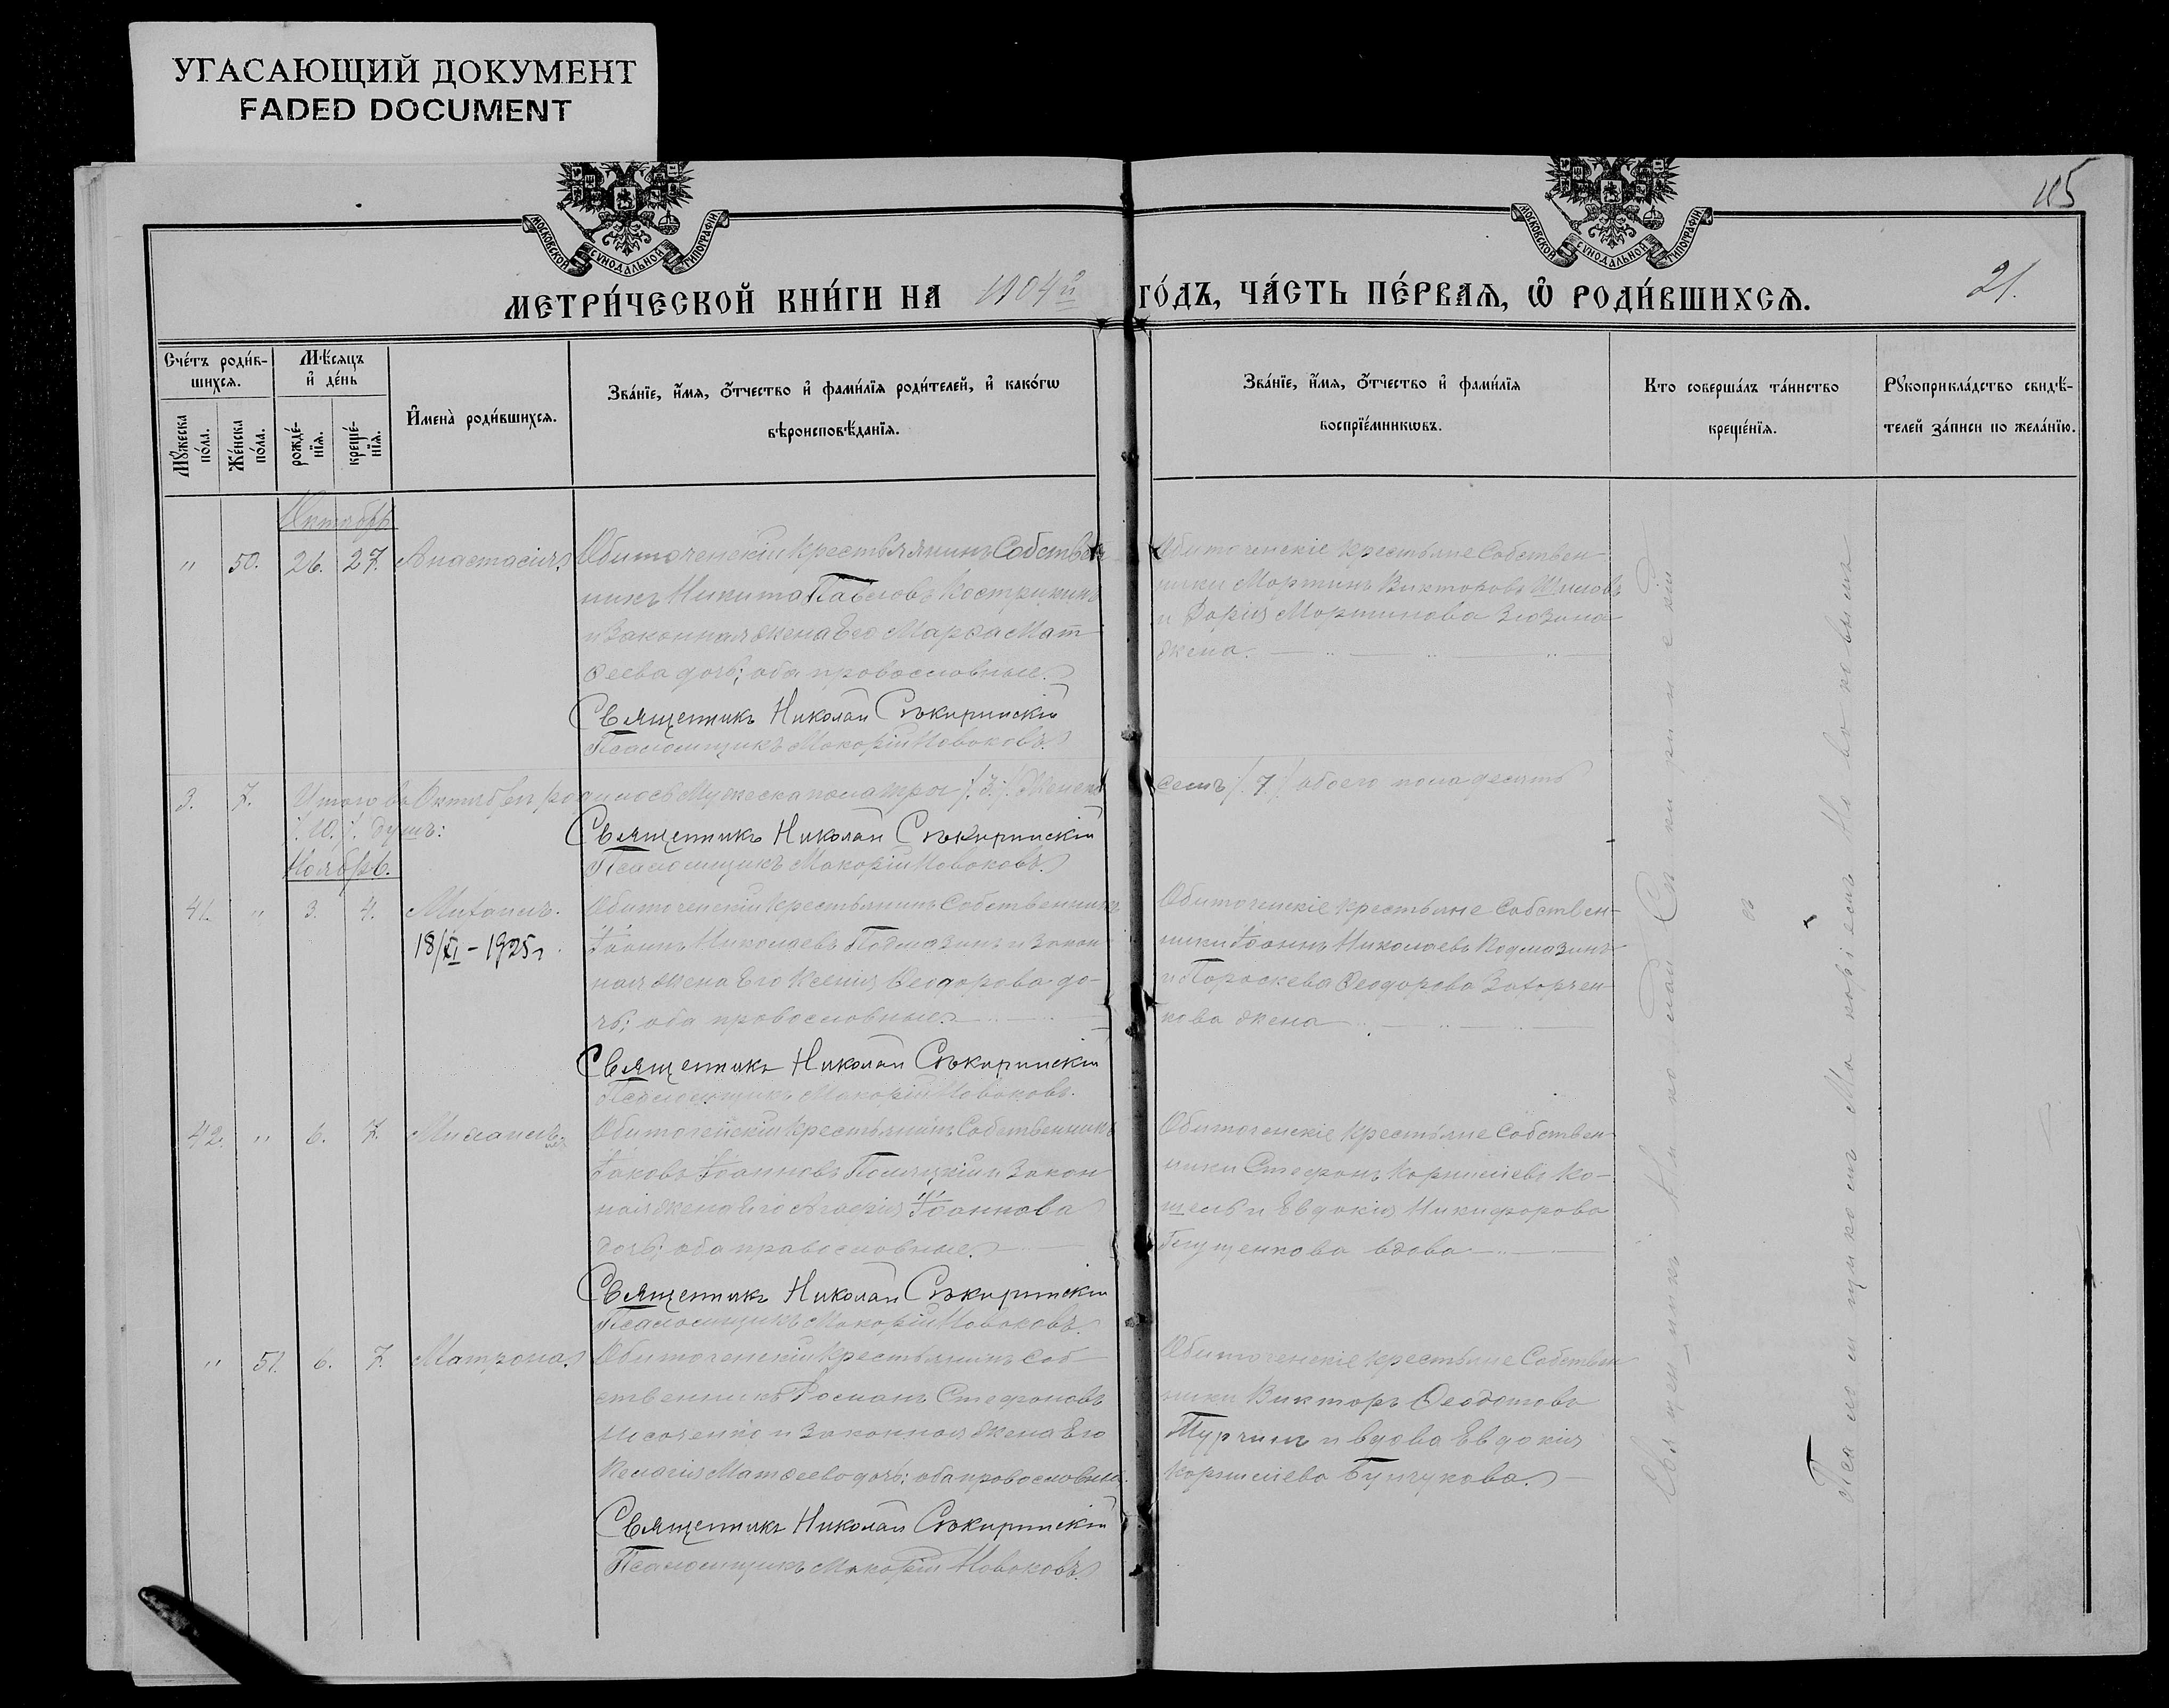 УГАСАЮЩИЙ ДОКУМЕНТ
FADED DOCUMENT
115
МОСКОВСКОЙ СУНОДАЛЬНОЙ ТИПОГРАФІИ
МОСКОВСКОЙ СУНОДАЛЬНОЙ ТИПОГРАФІИ
МЕТРИ́ЧЕСКОЙ КНИ́ГИ НА 1904й ГО́ДЪ, ЧА́СТЬ ПЕ́РВАѦ, Ѡ҆ РОДИ́ВШИХСѦ.
21.
Сче́тъ роди́в-
шихсѧ.
Мѣ́сяцъ
и҆ де́нь
Мꙋ́жеска
по́ла.
Же́нска
по́ла.
рожде́-
нїѧ.
креще́-
нїѧ.
И҆мена̀ роди́вшихсѧ.
Зва́нїе, и҆́мѧ, ѻ҆́тчество и҆ фами́лїѧ роди́телей, и҆ како́гѡ
вѣроисповѣ́данїѧ.
Зва́нїе, и҆́мѧ, ѻ҆́тчество и҆ фами́лїѧ
воспрїе́мникѡвъ.
Кто соверша́лъ та́инство
креще́нїѧ.
Рꙋкоприкла́дство свидѣ́-
телей за́писи по жела́нїю.
Октябрь
" 50. 26. 27. Анастасія
Обиточенскій крестьянинъ Собствен-
никъ Никита Павловъ Кострикинъ
и Законная жена Его Марѳа Мат-
ѳеева дочь; оба православные.
Священникъ Николай Сѣкиринскій
Псаломщикъ Макарій Новаковъ.
Обиточенскіе крестьяне Собствен-
ники Мартинъ Викторовъ
и Дарія Мартинова Зюзина
жена.
3. 7. Итого въ Октябрѣ родилось Мужеска пола три /.3./. Женска
семь /.7./ обоего пола десять
/.10./. душъ:
Священникъ Николай Сѣкиринскій
Псаломщикъ Макарій Новаковъ.
Ноябрь.
41. " 3. 4. Михаилъ.
18/XI - 1925г.
Обиточенскій крестьянинъ Собственникъ
Іоаннъ Николаевъ Подмазинъ и Закон-
ная жена Его Ксенія Ѳеодорова до-
чь; оба православные.
Священникъ Николай Сѣкиринскій
Псаломщикъ Макарій Новаковъ.
Обиточенскіе крестьяне Собствен-
ники Іоаннъ Николаевъ Подмазинъ
и Параскева Ѳеодорова Захарчен-
кова жена
42. " 6. 7. Михаилъ
Обиточенскій крестьянинъ Собственникъ
Іаковъ Іоанновъ и Закон-
ная жена Его Агафія Іоаннова
дочь; оба православные.
Священникъ Николай Сѣкиринскій
Псаломщикъ Макарій Новаковъ.
Обиточенскіе крестьяне Собствен-
ники Стефанъ Корнилiевъ Ко-
шель и Евдокія Никифорова
Глущенкова вдова
" 51. 6. 7. Матрона
Обиточенскій крестьянинъ Соб-
ственникъ Романъ Стефановъ
Носаченко и Законная жена Его
Пелагія Матѳеева дочь; оба православны.
Священникъ Николай Сѣкиринскій
Псаломщикъ Макарій Новаковъ.
Обиточенскіе крестьяне Собствен-
ники Викторъ Ѳеодотовъ
Турчинъ и вдова Евдокія
Корнилiева Бунчукова.
Священникъ Николай Сѣкиринскій
съ
Псаломщикомъ Макаріемъ Новаковымъ